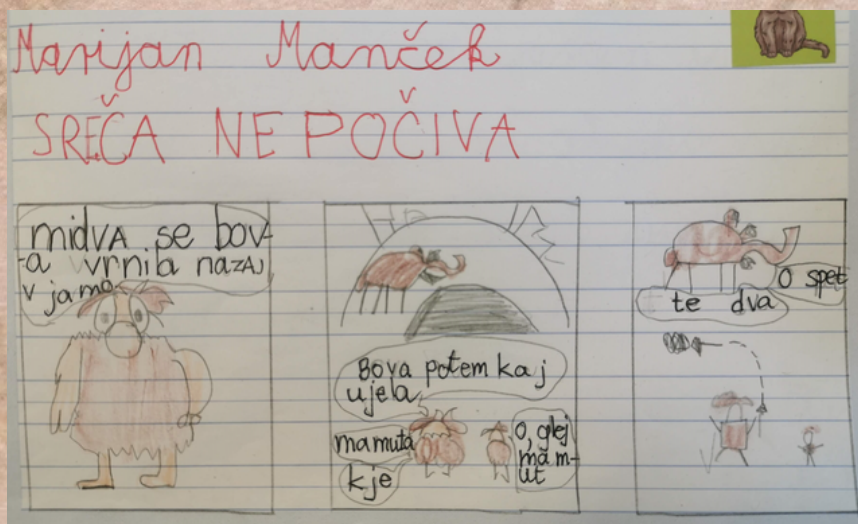 Marijan Manček
SREČA NE POČIVA
midva se bov-
-a vrnila nazaj
v jamo
Bova potem kaj
ujela
mamuta
kje
O, glej
mam-
ut
O spet
te dva